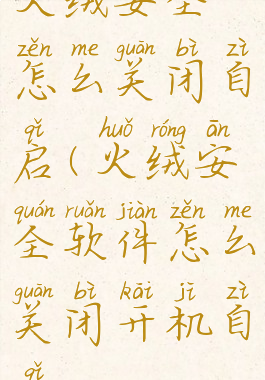 火绒安全
zěn me guān bì zì
怎么关闭自
qǐ huǒ róng ān
启(火绒安
quán ruǎn jiàn zěn me
全软件怎么
guān bì kāi jī zì
关闭开机自
qǐ